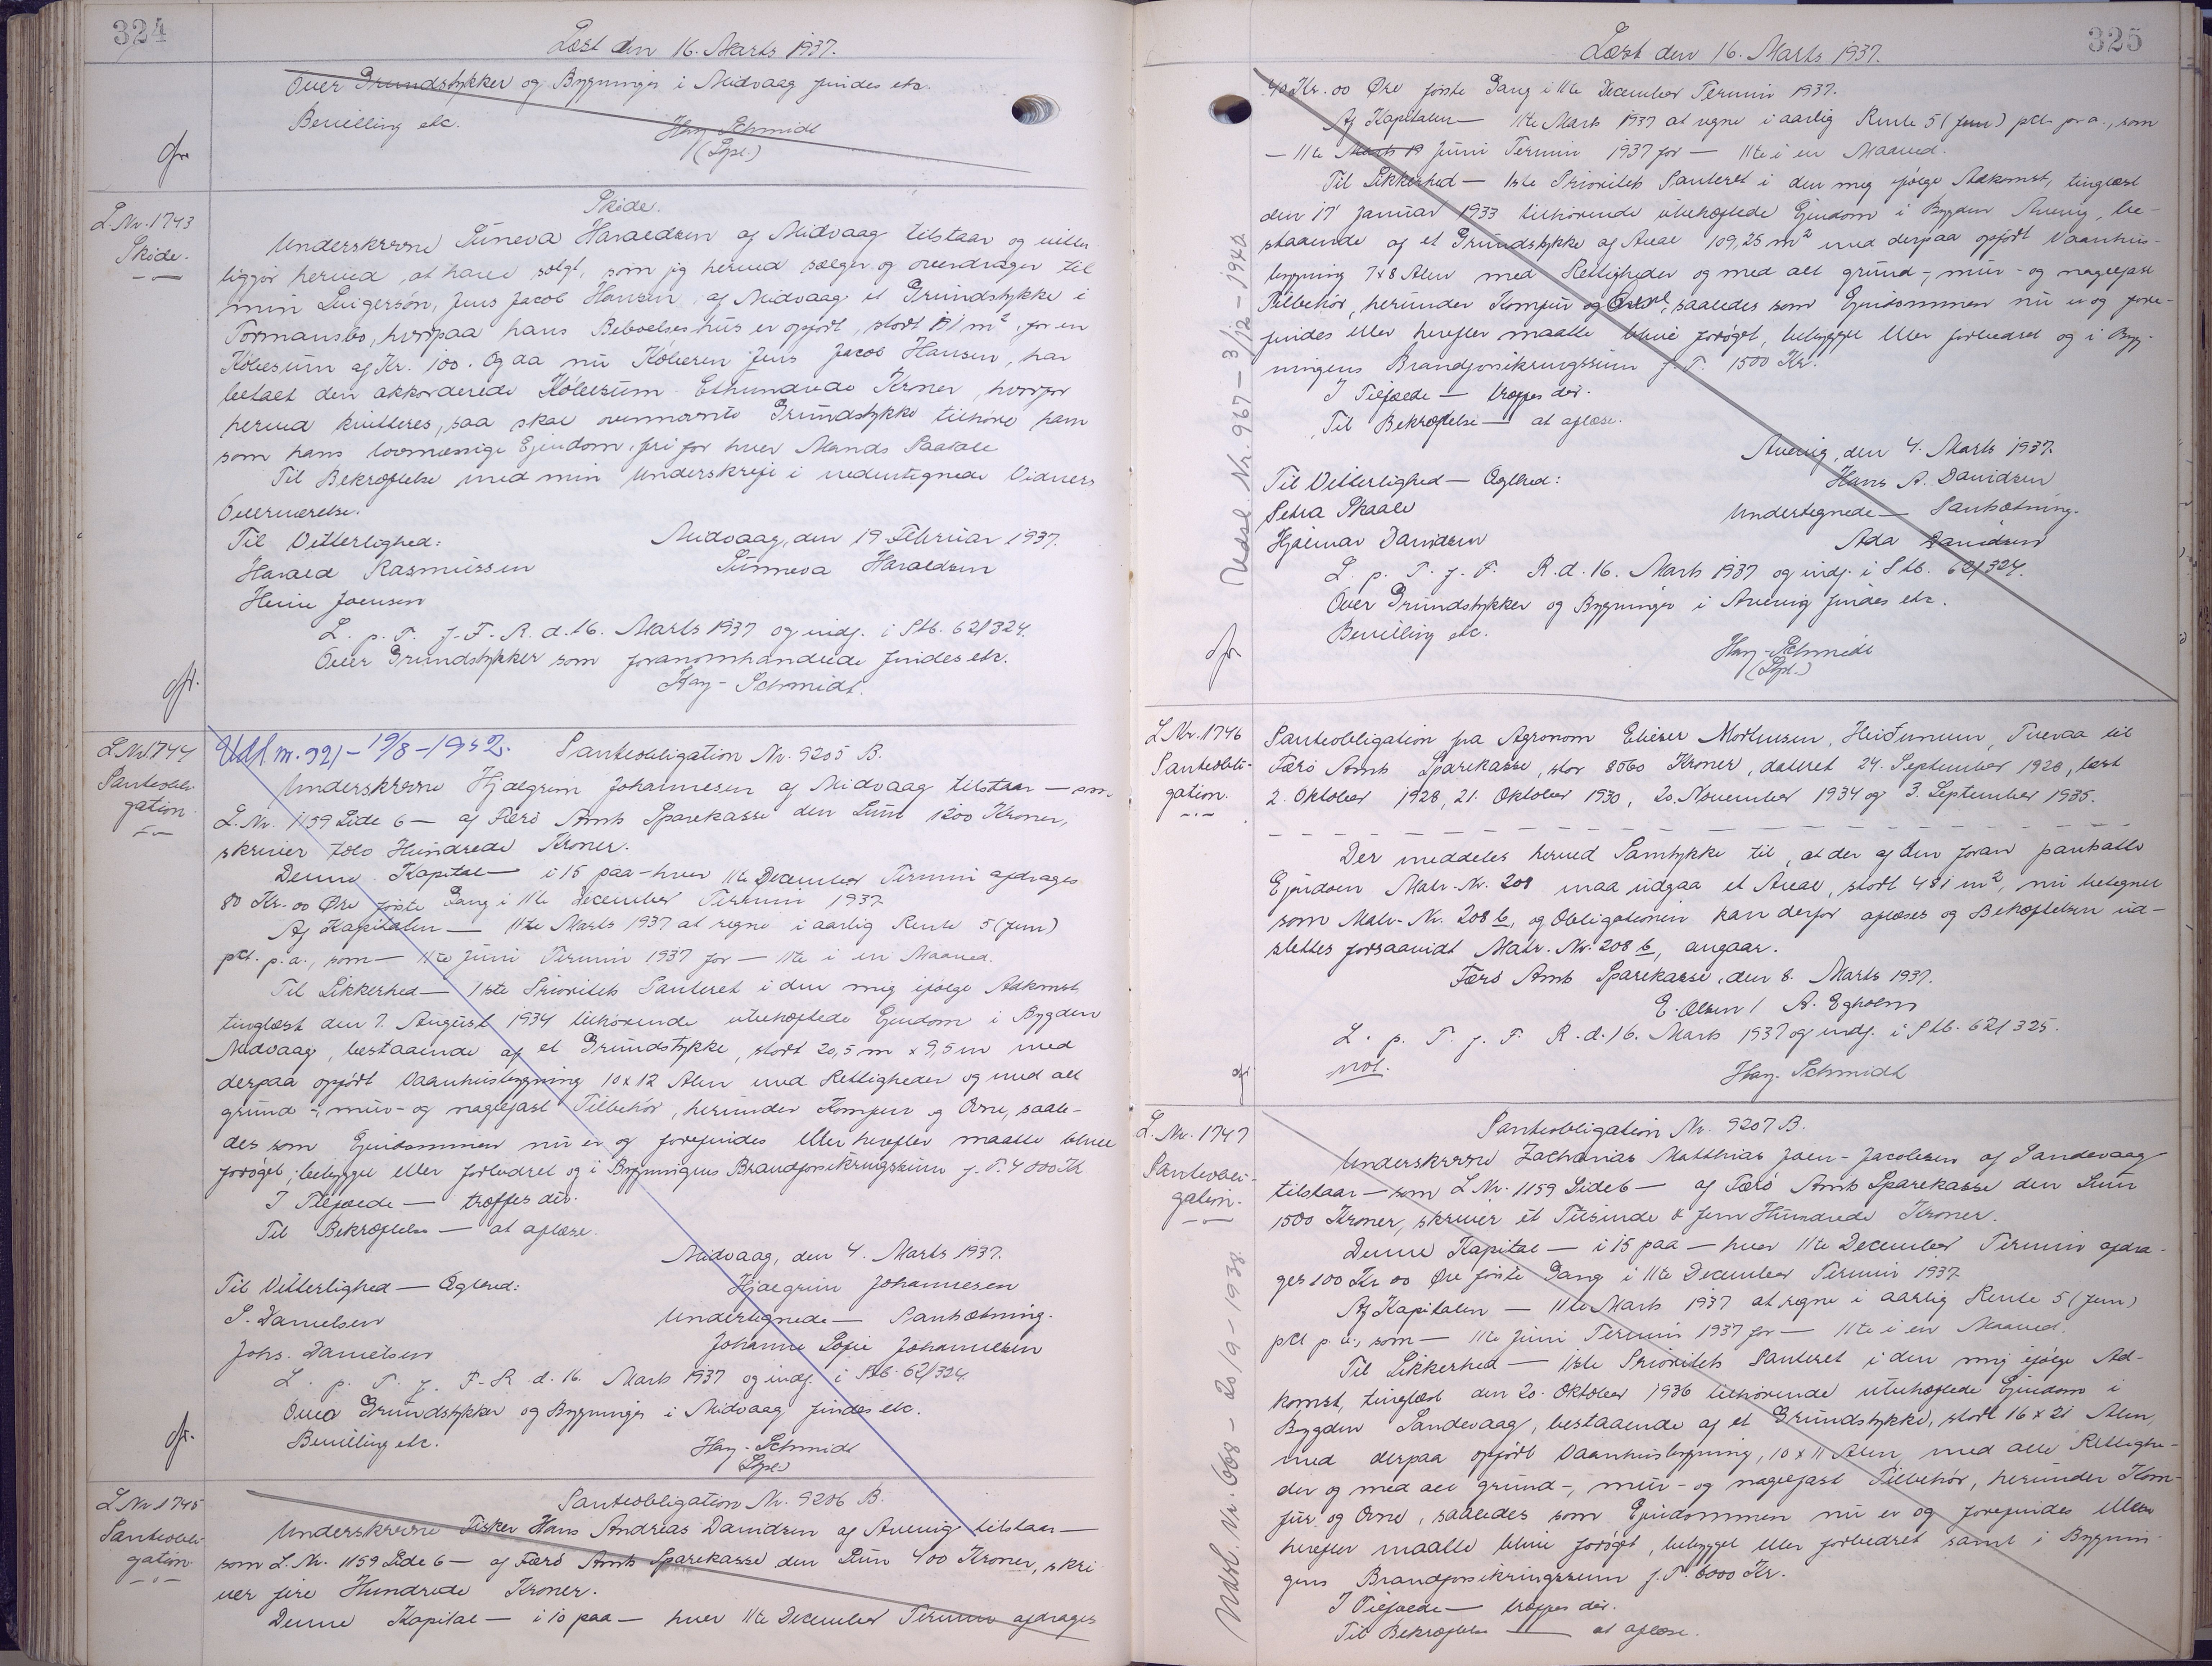 324
Læst den 16. Marts 1937.
Over Grundstykker og Bygninger i Midvaag findes etc.
Bevilling etc.
Hay-Schmidt
(Spl.)
L.Nr. 1743
Skøde.
Skøde.
Underskrevne Sunneva Haraldsen af Midvaag tilstaar og vitter-
liggjør herved at have solgt, som jeg herved sælger og overdrager til
min Svigersøn, Jens Jacob Hansen af Midvaag et Grundstykke i
Tormansbø, hvorpaa hans Beboelseshus er opført, stort m², for en
Købesum af Kr. 100. Og da nu Køberen Jens Jacob Hansen, har
betalt den akkorderede Købesum Ethundrede Kroner, hvorfor
herved kvitteres, saa skal ovennævnte Grundstykke tilhøre ham
som hans lovmæssige Ejendom, fri for hver Mands Paatale
Til Bekræftelse med min Underskrift i nedentegnede Vidners
Overværelse.
Midvaag, den 19 Februar 1937.
Til Vitterlighed:
Sunneva Haraldsen
Harald Rasmussen
Heine Joensen
L. p. T. f. F. R. d. 16. Marts 1937 og indf. i Ptb. 62/324.
Over Grundstykker som foranomhandlede findes etc.
Hay-Schmidt.
L.Nr. 1744
Panteobli-
gation.
Udsl. nr. 921 - 19/8 - 1952.
Panteobligation Nr. 9205 B.
Underskrevne Hjalgrim Johannesen af Midvaag tilstaar — som
L.Nr. 1159 Side 6 — af Færø Amts Sparekasse den Sum 1200 Kroner,
skriver tolv Hundrede Kroner.
Denne Kapital — i 15 paa — hver 11te December Termin afdrages
80 Kr. 00 Øre første Gang i 11te December Termin 1937
Af Kapitalen — 11te Marts 1937 at regne i aarlig Rente 5 (fem)
pCt. p.a., som — 11te Juni Termin 1937 for — 11te i en Maaned.
Til Sikkerhed — 1ste Prioritets Panteret i den mig ifølge Adkomst
tinglæst den 7. August 1934 tilhørende ubehæftede Ejendom i Bygden
Midvaag, bestaaende af et Grundstykke, stort 20,5 m x 9,5 m med
derpaa opført Vaanhusbygning 10 x 12 Alen med Rettigheder og med alt
grund-, mur- og naglefast Tilbehør, herunder Komfur og Ovne, saale-
des som Ejendommen nu er og forefindes eller herefter maatte blive
forøget, bebygget eller forbedret og i Bygningens Brandforsikringssum f. T. 4000 Kr
I Tilfælde — træffes der.
Til Bekræftelse — at aflæse.
Midvaag, den 4. Marts 1937.
Til Vitterlighed — Ægthed:
Hjalgrim Johannesen
S. Danielsen
Undertegnede — Pantsætning.
Johs. Danielsen
Johanne Sofie Johannesen
L. p. T. f. F. R. d. 16. Marts 1937 og indf. i Ptb. 62/324.
Over Grundstykker og Bygninger i Midvaag findes etc.
Bevilling etc.
Hay-Schmidt
(Spl.)
L Nr 1745
Panteobli-
gation
Panteobligation Nr. 9206 B.
Underskrevne Fisker Hans Andreas Davidsen af Avevig tilstaar —
som L.Nr. 1159 Side 6 — af Færø Amts Sparekasse den Sum 400 Kroner, skri-
ver fire Hundrede Kroner.
Denne Kapital — i 10 paa — hver 11te December Termin afdrages
325
Læst den 16. Marts 1937.
40 Kr. 00 Øre første Gang i 11te December Termin 1937.
Af Kapitalen — 11te Marts 1937 at regne i aarlig Rente 5 (fem) pCt. pr a., som
— 11te Marts 19 Juni Termin 1937 for — 11te i en Maaned.
Til Sikkerhed — 1ste Prioritets Panteret i den mig ifølge Adkomst, tinglæst
den 17' Januar 1933 tilhørende ubehæftede Ejendom i Bygden Avevig, be-
staaende af et Grundstykke af Areal 109,25 m² med derpaa opført Vaanhus-
bygning 7 x 8 Alen med Rettigheder og med alt grund-, mur- og naglefast
Tilbehør, herunder Komfur og Ovne, saaledes som Ejendommen nu er og fore-
findes eller herefter maatte blive forøget, bebygget eller forbedret og i Byg-
ningens Brandforsikringssum f. T. 1500 Kr.
I Tilfælde — træffes der.
Til Bekræftelse — at aflæse.
Avevig, den 4. Marts 1937.
Til Vitterlighed — Ægthed:
Hans A. Davidsen
Petra Skaale
Undertegnede — Pantsætning.
Hjalmar Davidsen
Ada Davidsen
L. p. T. f. F. R. d. 16. Marts 1937 og indf. i Ptb. 62/324.
Over Grundstykker og Bygninger i Avevig findes etc.
Bevilling etc.
Hay-Schmidt
(Spl.)
Udsl. Nr. 967 - 3/12 - 1940
L Nr. 1746
Panteobli-
gation.
Panteobligation fra Agronom Elieser Mortensen, Heiðunum, Tveraa til
Færø Amts Sparekasse, stor 8060 Kroner, dateret 24. September 1928, læst
2. Oktober 1928, 21. Oktober 1930, 20. November 1934 og 3. September 1935.
Der meddeles herved Samtykke til, at der af den foran pantsatte
Ejendom Matr. Nr. 208 maa udgaa et Areal, stort 481 m², nu betegnet
som Matr. Nr. 208 b, og Obligationen kan derfor aflæses og Behæftelsen ud-
slettes forsaavidt Matr. Nr. 208 b, angaar.
Færø Amts Sparekasse, den 8. Marts 1937.
E. Olsen / A. Egholm
L. p. T. f. F. R. d. 16. Marts 1937 og indf. i Ptb. 62/325.
not.
Hay-Schmidt
L. Nr. 1747
Panteobli-
gation.
Panteobligation Nr. 9207 B.
Underskrevne Zacharias Matthias Joen-Jacobsen af Sandevaag
tilstaar — som L Nr. 1159 Side 6 — af Færø Amts Sparekasse den Sum
1500 Kroner, skriver et Tusinde & fem Hundrede Kroner.
Denne Kapital — i 15 paa — hver 11te December Termin afdra-
ges 100 Kr 00 Øre første Gang i 11te December Termin 1937
Af Kapitalen — 11te Marts 1937 at regne i aarlig Rente 5 (fem)
pCt p. a., som — 11te Juni Termin 1937 for — 11te i en Maaned.
Til Sikkerhed — 1ste Prioritets Panteret i den mig ifølge Ad-
komst, tinglæst den 20. Oktober 1936 tilhørende ubehæftede Ejendom i
Bygden Sandevaag, bestaaende af et Grundstykke, stort 16 x 21 Alen,
med derpaa opført Vaanhusbygning, 10 x 11 Alen, med alle Rettighe-
der og med alt grund-, mur- og naglefast Tilbehør, herunder Kom-
fur og Ovne, saaledes som Ejendommen nu er og forefindes eller
herefter maatte blive forøget, bebygget eller forbedret samt i Bygnin-
gens Brandforsikringssum f. T. 6000 Kr.
I Tilfælde — træffes der.
Til Bekræftelse — at aflæse.
Udsl. Nr. 668 - 20/9 - 1938